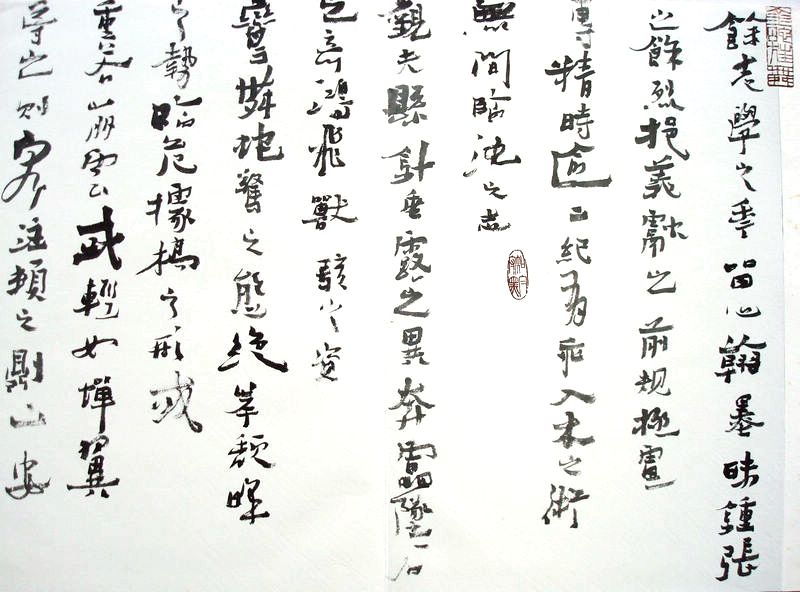 餘志學之年留心翰墨味鍾張
之餘烈挹羲獻之前規極慮
專精時逾二紀有乖入木之術
無間臨池之志
觀夫縣針垂露之異奔雷墜石
之奇鴻飛獸駭之姿
鸞舞蛇驚之態絕岸頹峰
之勢臨危據槁之形或
重若崩雲或輕如蟬翼
導之則泉注頓之則山安